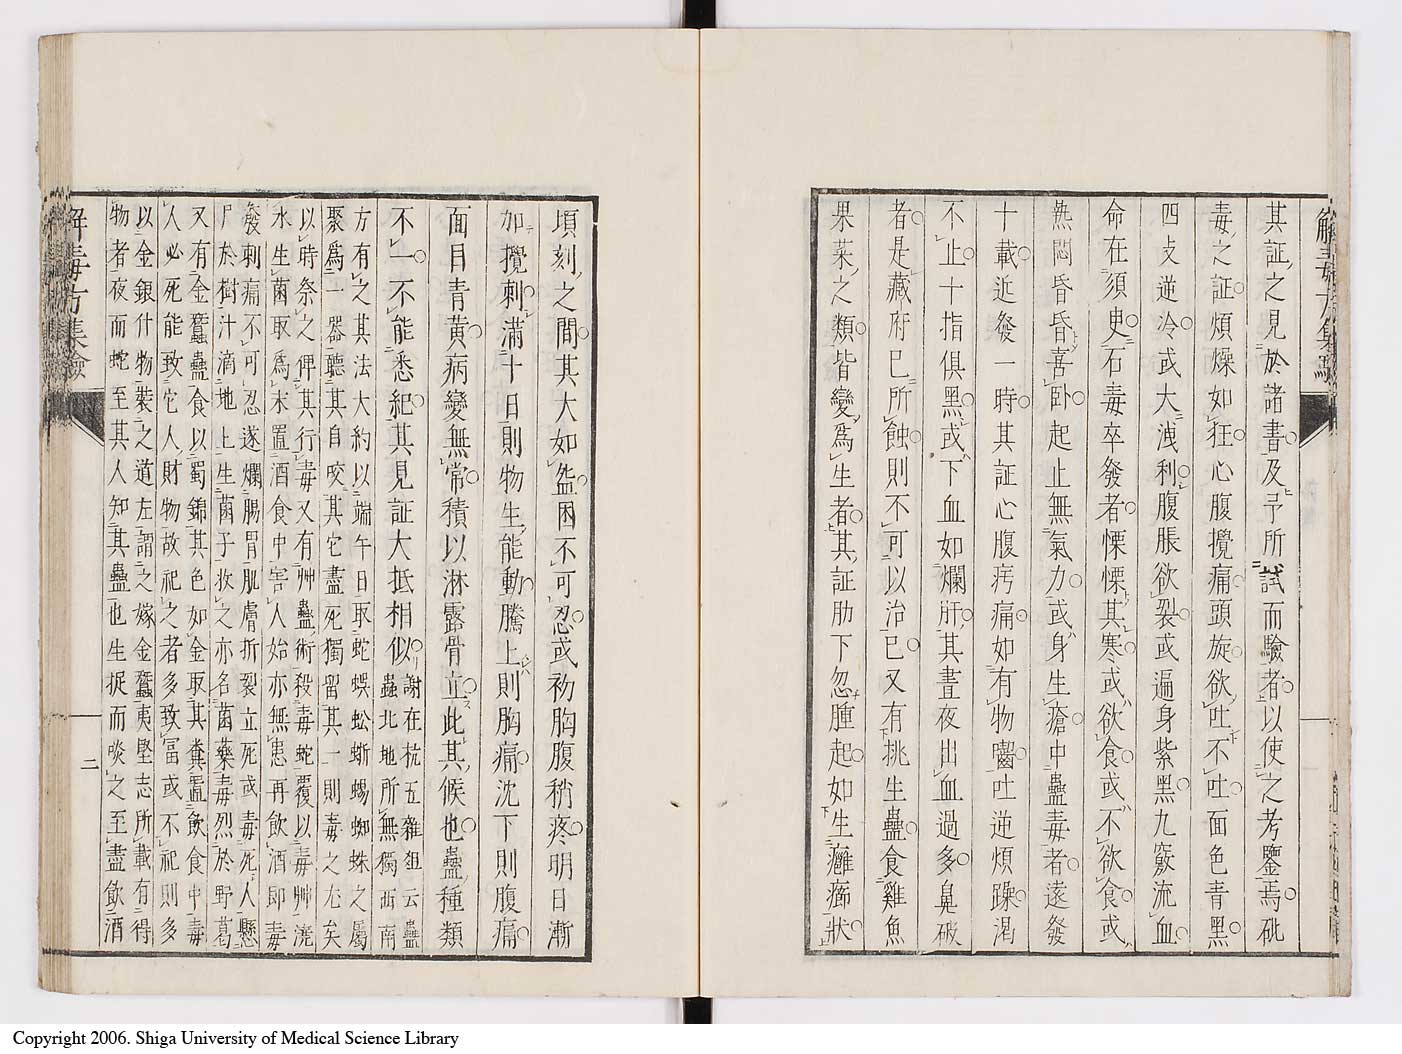 其証之見於諸書及予所試而驗者以使之考鑒焉砒
毒之証煩燥如狂心腹攪痛頭旋欲吐不吐面色青黑
四支逆冷或大洩利腹脹欲裂或遍身紫黑九竅流血
命在須臾石毒卒發者慄慄其寒或欲食或不欲食或
熱悶昏昏喜臥起止無氣力或身生瘡中蠱毒者遠發
十載近發一時其証心腹疞痛如有物嚙吐逆煩躁渴
不止十指俱黑或下血如爛肝其晝夜出血過多鼻破
者是藏府已所蝕則不可以治已又有挑生蠱食雞魚
果菜之類皆變為生者其証肋下忽腫起如生癰癤狀
頃刻之間其大如盌困不可忍或初胸腹稍疼明日漸
加攪刺滿十日則物生能動騰上則胸痛沈下則腹痛
面目青黃病變無常積以淋露骨立此其候也蠱種類
不一不能悉紀其見証大抵相似謝在杭五雜俎云蠱
蟲北地所無獨西南
方有之其法大約以端午日取蛇蜈蚣蜥蜴蜘蛛之屬
聚為一器聽其自咬其它盡死獨留其一則毒之尤矣
以時祭之俾其行毒又有艸蠱術殺毒蛇覆以毒艸澆
水生菌取為末置酒食中害人始亦無恙再飲酒即毒
發刺痛不可忍遂爛腸胃肌膚折裂立死或毒死人懸
尸於樹汁滴地上生菌子收之亦名菌藥毒烈於野葛
又有金蠶蠱食以蜀錦其色如金取其糞置飲食中毒
人必死能致它人財物故祀之者多致富或不祀則多
以金銀什物裝之道左謂之嫁金蠶夷堅志所載有得
物者夜而蛇至其人知其蠱也生捉而啖之至盡飲酒
解毒方集驗
二
Copyright 2006. Shiga University of Medical Science Library